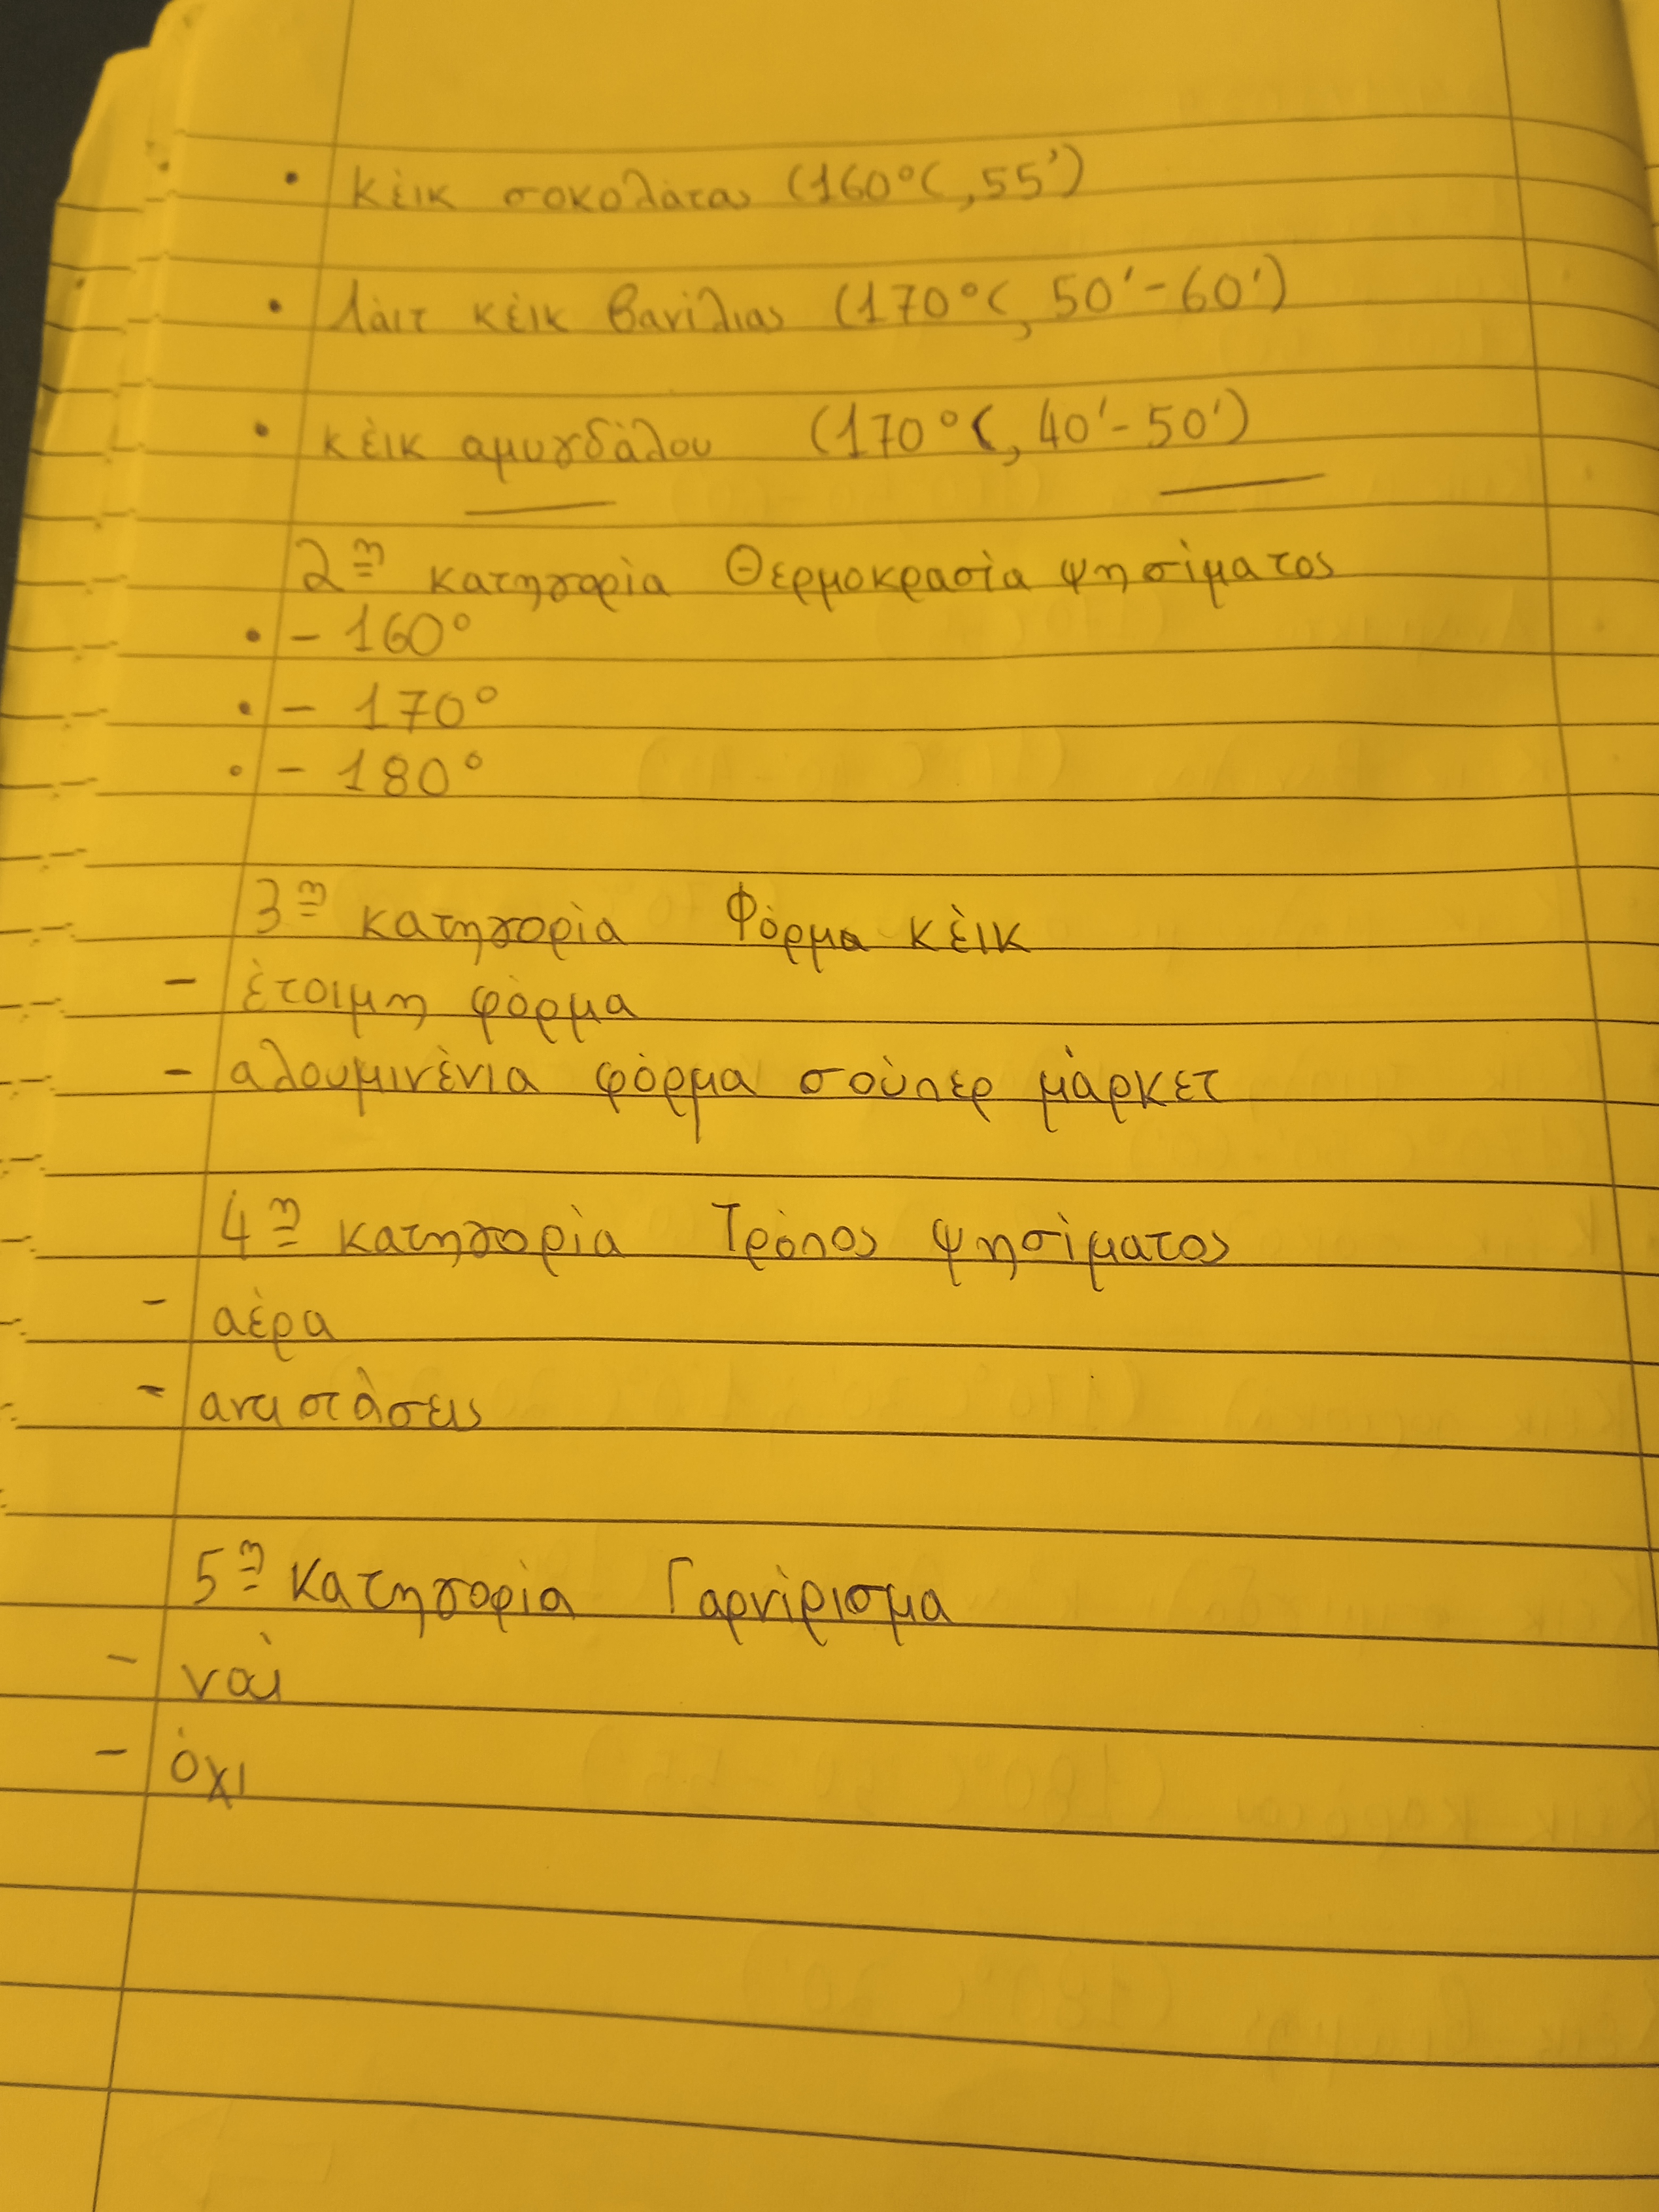 • κέικ σοκολάτας (160°C, 55')
• Λάιτ κέικ βανίλιας (170°C, 50'-60')
• κέικ αμυγδάλου (170°C, 40'-50')
2η κατηγορία Θερμοκρασία ψησίματος
• - 160°
• - 170°
• - 180°
3η κατηγορία Φόρμα κέικ
- έτοιμη φόρμα
- αλουμινένια φόρμα σούπερ μάρκετ
4η κατηγορία Τρόπος ψησίματος
- αέρα
- αντιστάσεις
5η Κατηγορία Γαρνίρισμα
- ναι
- όχι